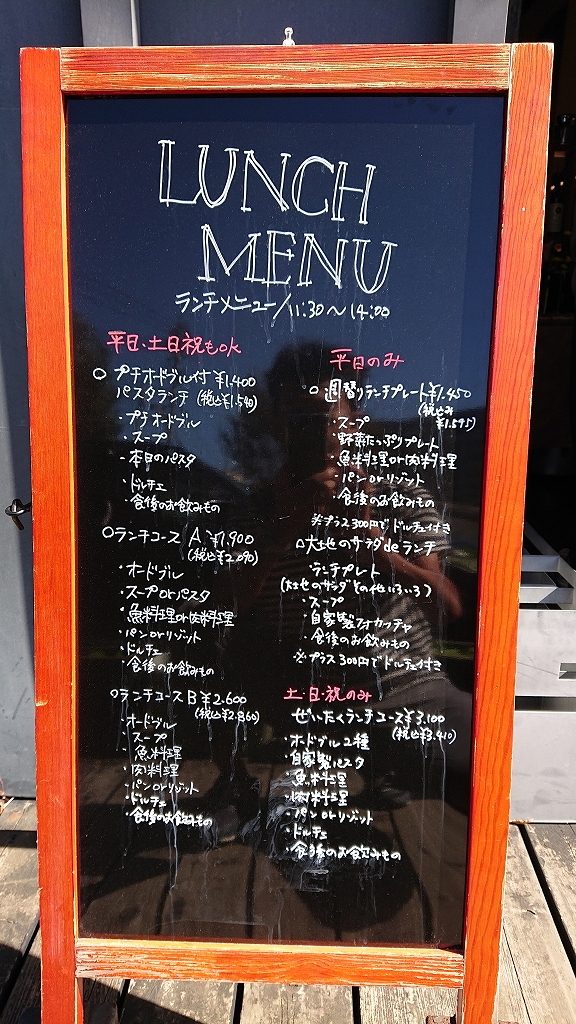 LUNCH
MENU
ランチメニュー/11:30〜14:00
平日・土日祝もok
○ プチオードブル付 ¥1,400
パスタランチ (税込¥1,540)
・プチオードブル
・スープ
・本日のパスタ
・ドルチェ
・食後のお飲みもの
○ランチコース A ¥1,900
(税込¥2,090)
・オードブル
・スープorパスタ
・魚料理or肉料理
・パンorリゾット
・ドルチェ
・食後のお飲みもの
○ランチコース B ¥2,600
(税込¥2,860)
・オードブル
・スープ
・魚料理
・肉料理
・パンorリゾット
・ドルチェ
・食後のお飲みもの
平日のみ
○週替りランチプレート¥1,450
(税込み
¥1,595)
・スープ
・野菜たっぷりプレート
・魚料理or肉料理
・パンorリゾット
・食後のお飲みもの
※プラス300円でドルチェ付き
○大地のサラダdeランチ
・ランチプレート
(大地のサラダその他いろいろ)
・スープ
・自家製フォカッチャ
・食後のお飲みもの
※プラス300円でドルチェ付き
土・日・祝のみ
ぜいたくランチコース¥3,100
(税込¥3,410)
・オードブル2種
・自家製パスタ
・魚料理
・肉料理
・パンorリゾット
・ドルチェ
・食後のお飲みもの